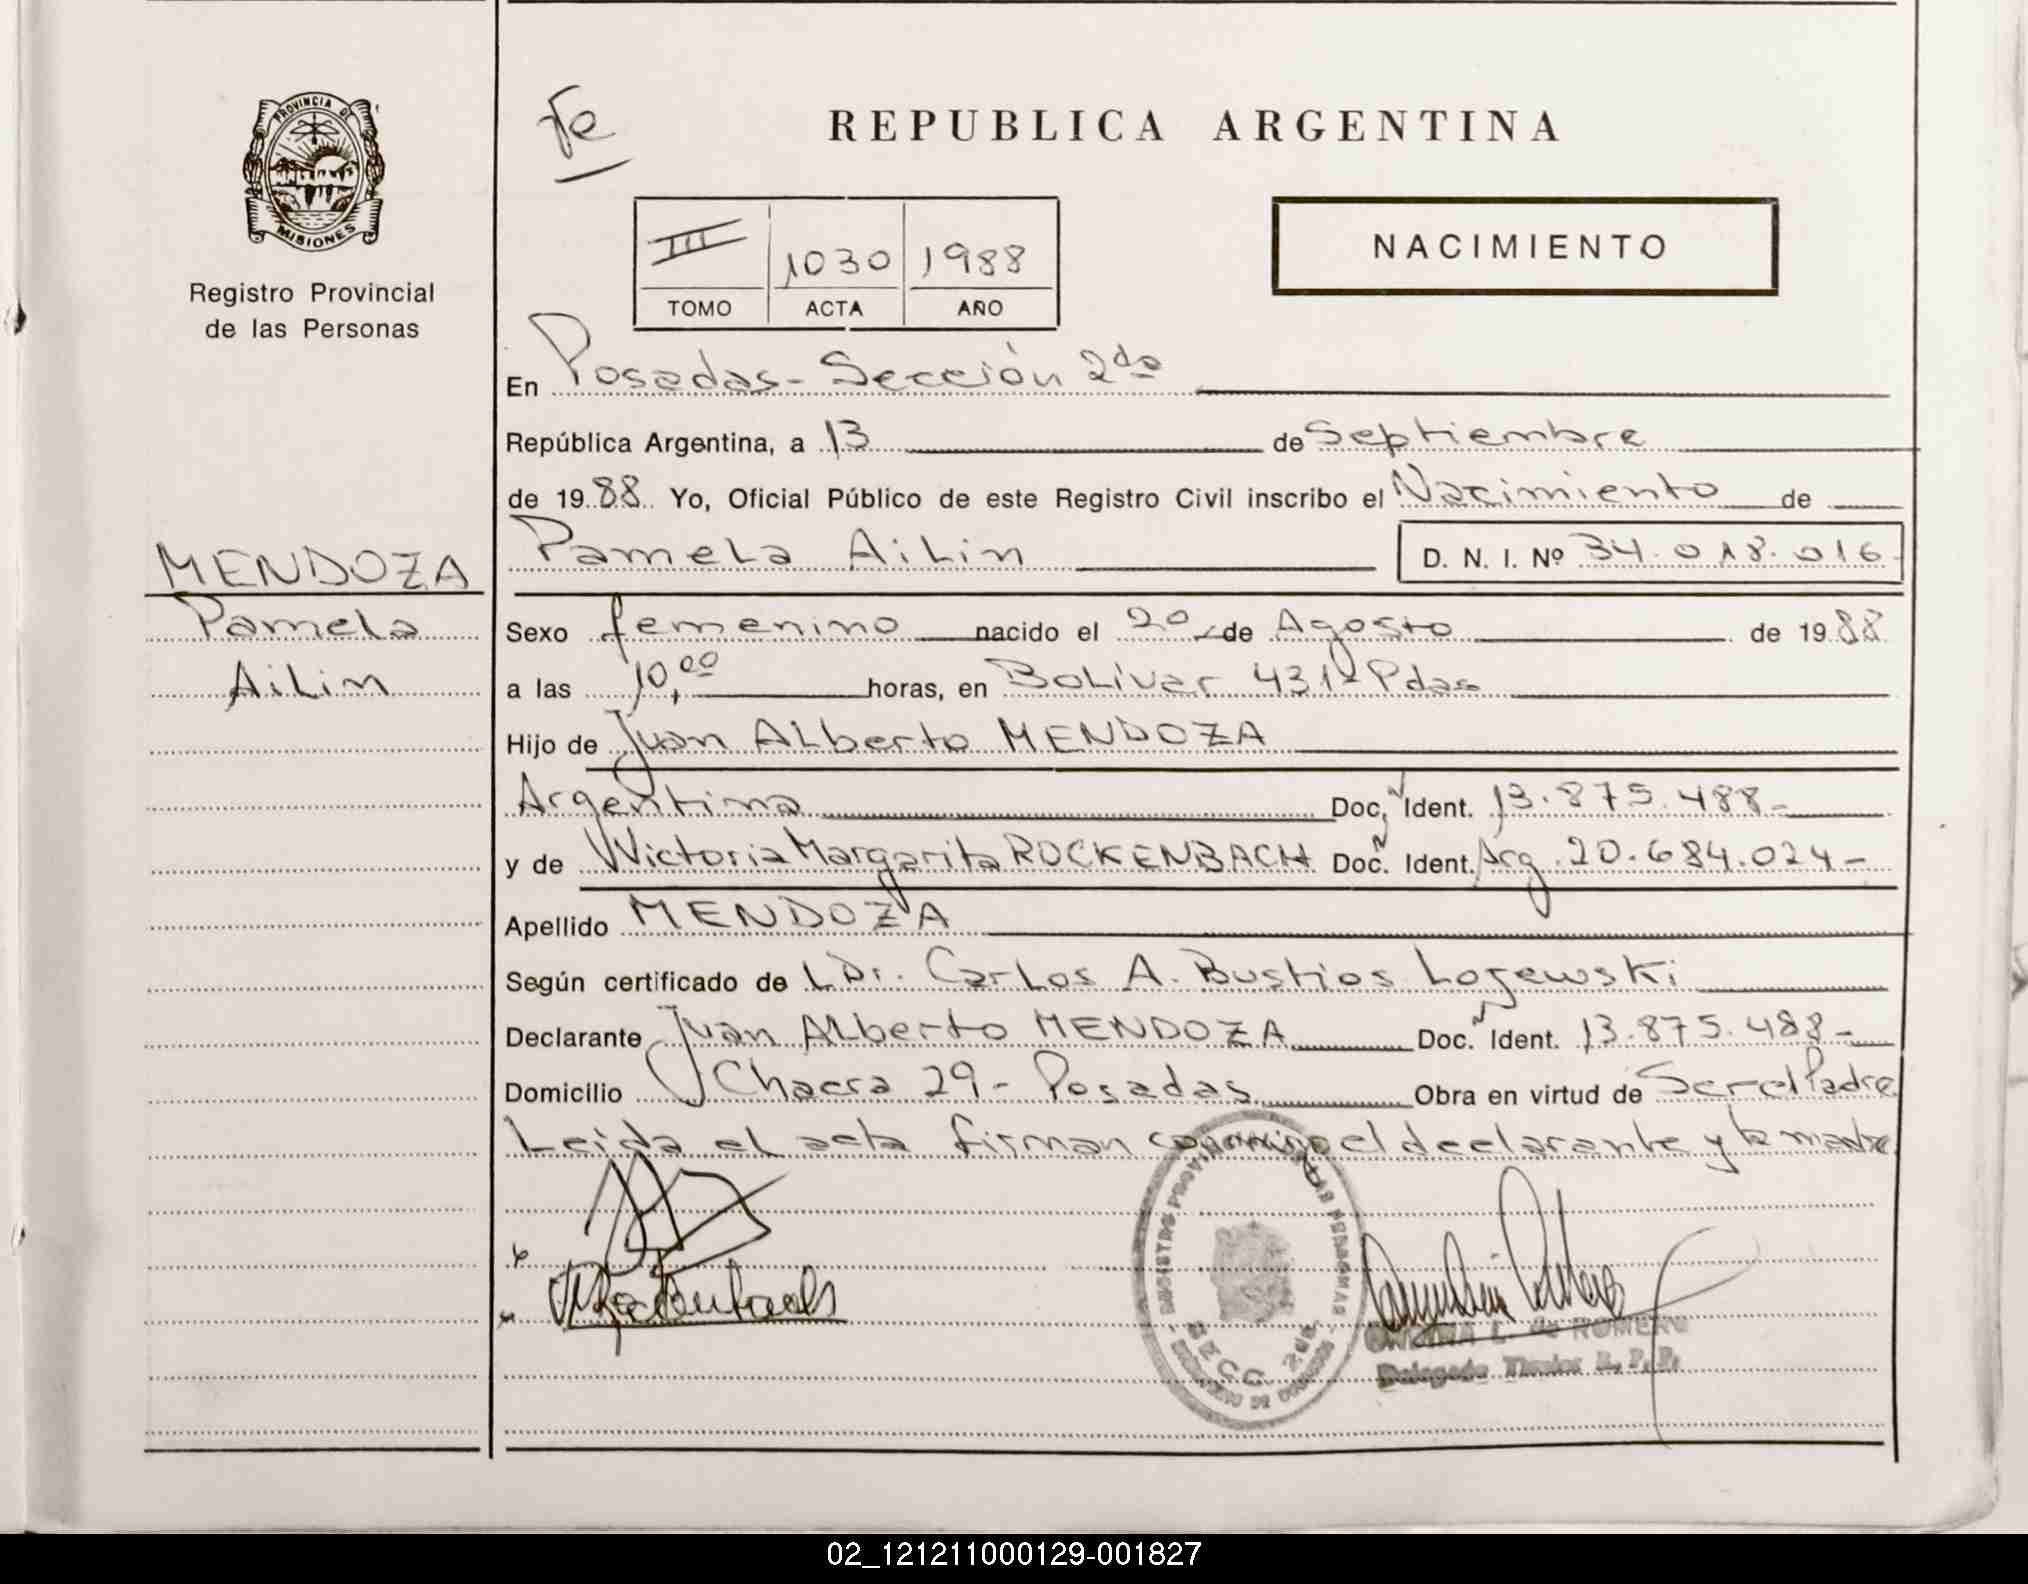 PROVINCIA DE
MISIONES
Registro Provincial
de las Personas
MENDOZA
Pamela
Ailin
Fe
REPUBLICA ARGENTINA
III 1030 1988
TOMO ACTA AÑO
NACIMIENTO
En Posadas - Sección 2da
República Argentina, a 13 de Septiembre
de 1988 Yo, Oficial Público de este Registro Civil inscribo el Nacimiento de
Pamela Ailin D. N. I. Nº 34.018.016
Sexo femenino nacido el 20 de Agosto de 1988
a las 10,00 horas, en Bolivar 431 - Pdas
Hijo de Juan Alberto MENDOZA
Argentina Doc. Ident. 13.875.488-
y de Wictoria Margarita ROCKENBACH Doc. Ident. Arg. 20.684.024-
Apellido MENDOZA
Según certificado de Dr. Carlos A. Bustios Lojewski
Declarante Juan Alberto MENDOZA Doc. Ident. 13.875.488-
Domicilio Chacra 29 - Posadas Obra en virtud de Ser el Padre
Leida el acta firman conmigo el declarante y la madre
SECC. 2da.
L. de ROMERO
Delegada Titular R. P. P.
02_121211000129-001827